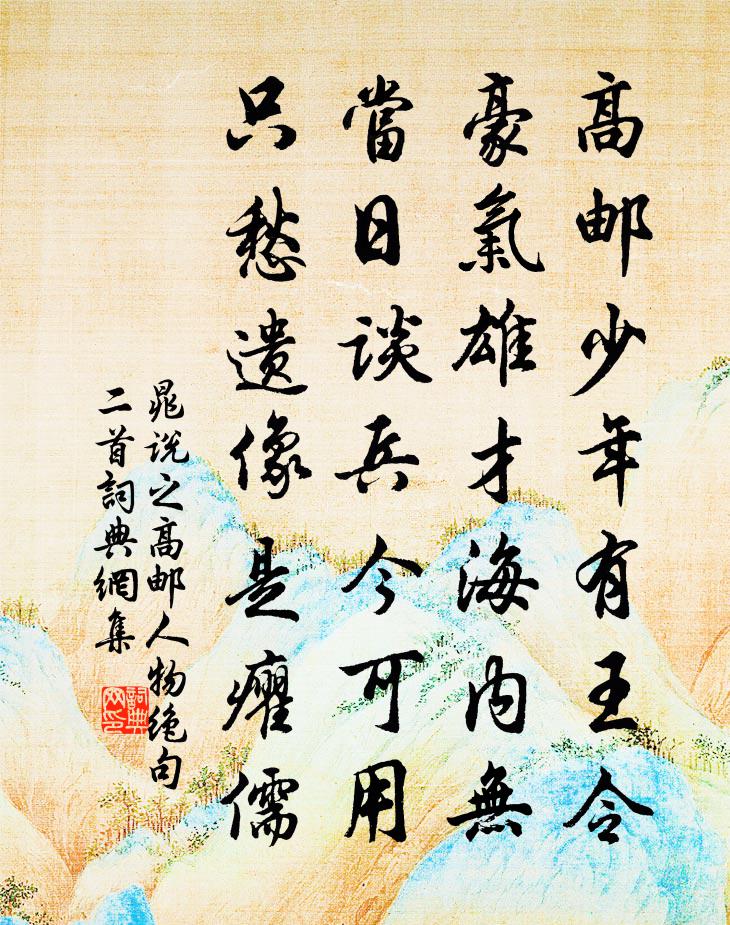 高邮少年有王令
豪氣雄才海内無
當日談兵今可用
只愁遺像是癯儒
晁说之高邮人物绝句
二首詞典網集
詞典
网印